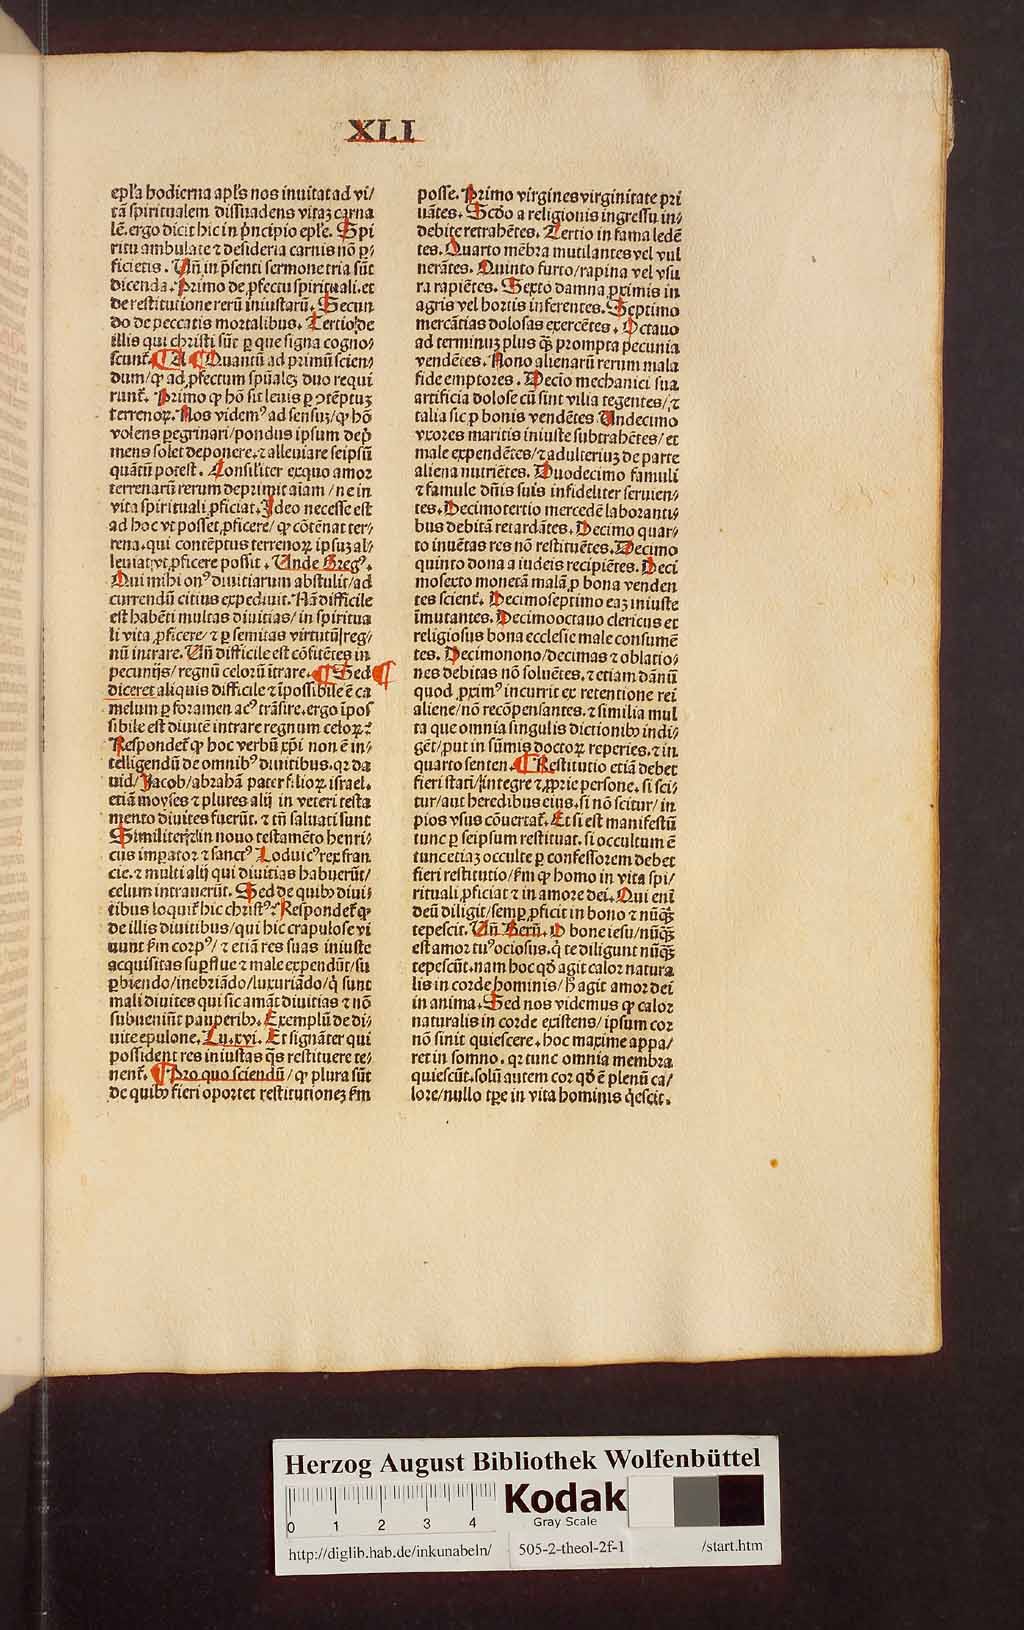 XLI
epl'a hodierna apl's nos inuitat ad vi/
tā spiritualem dissuadens vitaꝫ carna
lē. ergo dicit hic in p̄ncipio epl'e. Spi
ritu ambulate ⁊ desideria carnis nō ꝑ-
ficietis. Vn̄ in p̄senti sermone tria sūt
dicenda. Primo de ꝓfectu spirituali. et
de restitutione rerū iniustarū. Secun
do de peccatis mortalibus. Tertio de
illis qui christi sūt ꝑ que signa cogno/
scunt᷑. ¶ A ¶ Quantū ad primū scien/
dum/ꝙ ad ꝓfectum spūaleꝫ duo requi
runt᷑. Primo ꝙ hō sit leuis ꝑ ↄtēptuꝫ
terrenoꝝ. Nos videmꝰ ad sensuꝫ/ꝙ hō
volens ꝑegrinari/pondus ipsum dep̄
mens solet deponere. ⁊ alleuiare seipsū
quātū potest. Consiliter exquo amor
terrenarū rerum deprimit aīam/ne in
vita spirituali ꝓficiat. Ideo necesse est
ad hoc vt posset ꝓficere/ꝙ cōtēnat ter/
rena. qui contēptus terrenoꝝ ipsuꝫ al/
leuiat vt ꝓficere possit. Unde Gregꝰ.
Qui mihi onꝰ diuitiarum abstulit/ad
currendū citius expediuit. Nā difficile
est habēti multas diuitias/in spiritua
li vita ꝓficere/⁊ ꝑ semitas virtutū reg/
nū intrare. Vn̄ difficile est cōfitētes in
pecunijs/regnū celorū ītrare. ¶ Sed ¶
diceret aliquis difficile ⁊ īpossibile ē ca
melum ꝑ foramen acꝰ trāsire. ergo īpos
sibile est diuitē intrare regnum celoꝝ?
Respondet᷑ ꝙ hoc verbū xp̄i non ē in/
telligendū de omnibꝰ diuitibus. qꝛ da
uid/Jacob/abrahā pater filioꝝ israel.
etiā moyses ⁊ plures alij in veteri testa
mento diuites fuerūt. ⁊ tn̄ saluati sunt
Similiter in nouo testamēto henri/
cus imꝑator ⁊ sanctꝰ Lodiuicꝰ rex fran
cie. ⁊ multi alij qui diuitias habuerūt/
celum intrauerūt. Sed de quibꝰ diui/
tibus loquit᷑ hic christꝰ? Respondet᷑ ꝙ
de illis diuitibus/qui hic crapulose vi
uunt ẜm corpꝰ/⁊ etiā res suas iniuste
acquisitas suꝑflue ⁊ male expendūt/su
ꝑbiendo/inebriādo/luxuriādo/q̇ sunt
mali diuites qui sic amāt diuitias ⁊ nō
subueniūt pauperibꝰ. Exemplū de di/
uite epulone. Lu. xvi. Et signāter qui
possident res iniustas q̄s restituere te/
nent᷑. ¶ Pro quo sciendū/ꝙ plura sūt
de quibꝰ fieri oportet restitutioneꝫ ẜm
posse. Primo virgines virginitate pri
uātes. Scd̄o a religionis ingressu in/
debite retrahētes. Tertio in fama ledē
tes. Quarto mēbra mutilantes vel vul
nerātes. Quinto furto/rapina vel vsu
ra rapiētes. Sexto damna ꝓximis in
agris vel hortis inferentes. Septimo
mercātias dolosas exercētes. Octauo
ad terminuꝫ plus q̄ꝫ prompta pecunia
vendētes. Nono alienarū rerum mala
fide emptores. Decīo mechanici sua
artificia dolose cū sint vilia tegentes/⁊
talia sic ꝓ bonis vendētes. Undecimo
vxores maritis iniuste subtrahētes/et
male expendētes/⁊ adulteriuꝫ de parte
aliena nutriētes. Duodecimo famuli
⁊ famule dn̄is suis infideliter seruien/
tes. Decimotertio mercedē laboranti/
bus debitā retardātes. Decimo quar/
to inuētas res nō restituētes. Decimo
quinto dona a iudeis recipiētes. Deci
mosexto monetā malā ꝓ bona venden
tes scient᷑. Decimoseptimo eaꝫ iniuste
īmutantes. Decimooctauo clericus et
religiosus bona ecclesie male consumē
tes. Decimonono/decimas ⁊ oblatio/
nes debitas nō soluētes. ⁊ etiam dānū
quod ꝓximꝰ incurrit ex retentione rei
aliene/nō recōpensantes. ⁊ similia mul
ta que omnia singulis dictionibꝰ indi/
gēt/put in sūmis doctoꝝ reperies. ⁊ in
quarto senten. ¶ Restitutio etiā debet
fieri stati/integre ⁊ ꝓprie persone. si sci/
tur/aut heredibus eius. si nō scitur/in
pios vsus cōuertat᷑. Et si est manifestū
tunc ꝑ seipsum restituat. si occultum ē
tunc etiaꝫ occulte ꝑ confessorem debet
fieri restitutio/ẜm ꝙ homo in vita spi/
rituali ꝓficiat ⁊ in amore dei. Qui eni
deū diligit/semꝑ ꝓficit in bono ⁊ nūq̄ꝫ
tepescit. Vn̄ Bern̄. O bone iesu/nūq̄ꝫ
est amor tuꝰ ociosus. q̇ te diligunt nūq̄ꝫ
tepescūt. nam hoc qd̄ agit calor natura
lis in corde hominis/h̄ agit amor dei
in anima. Sed nos videmus ꝙ calor
naturalis in corde existens/ipsum cor
nō sinit quiescere. hoc maxime appa/
ret in somno. qꝛ tunc omnia membra
quiescūt. solū autem cor qd̄ ē plenū ca/
lore/nullo tꝑe in vita hominis q̇escit.
Herzog August Bibliothek Wolfenbüttel
0 1 2 3 4
Kodak
Gray Scale
http://diglib.hab.de/inkunabeln/ 505-2-theol-2f-1 /start.htm